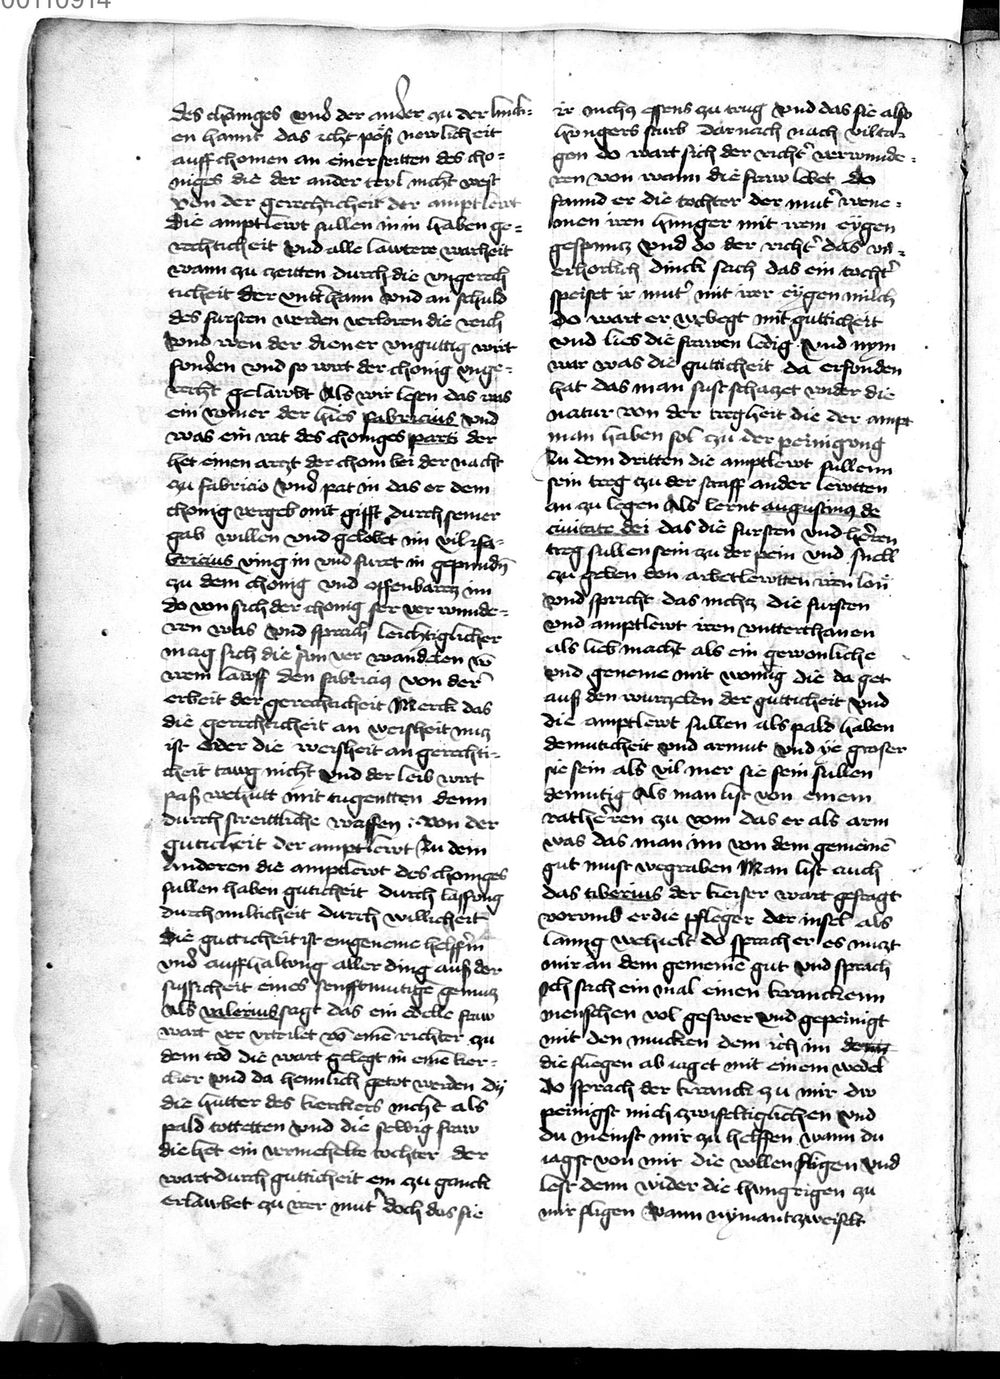 00110914
des chainges vnd der ander zu der linck-
en hannt das icht pöß newlicheit
auff chomen an einer seitten des cho-
niges die der ander teyl nicht west
Von der gerechticheit der amptlewt
Die amptlewt sullen in in haben ge-
rechticheit vnd alle lawtere warheit
wann zu zeitten durch die vngerech
ticheit der vntterthann vnd an schuld
des fursten werden verloren die reich
vnd wen der diener vnguttig wirt
fonden vnd so wirt der chonig vnge-
recht gelawbt Als wir lesen das was
ein romer der hies fabricius vnd
was ein rat des choniges parti der
het einen arczt der chom bei der nacht
zu fabricio vnd pat in das er dem
chonig vergeb mit gifft durch seiner
gab willen vnd gelobet im vil fa-
bricius ving in vnd furet in gepundn
zu dem chonig vnd offenbartz im
do von sich der chonig ser verwunde-
ren was vnd sprach leichtiglicher
mag sich die sun verwandelen vo
irem lawff den fabricius von der
erbeit der gerechticheit Merck das
die gerechticheit an weisheit nutz
ist Oder die weisheit an gerechti-
cheit tawg nicht vnd der leib wirt
paß wehutt mit tugentten denn
durch streittliche waffen : Von der
guticheit der amptlewt Zu dem
Anderen die amptlewt des choniges
sullen haben guticheit durch lassung
durch milticheit durch willicheit
Die gutticheit ist ein geneme helfferin
vnd auffhaltung aller ding auß der
sussicheit eines senfftmutige gemutz
Als valerius sagt das ein edelle fraw
wart ver vrteilet vo eine richter zu
dem tod die wart gelegt in eine ker-
cker vnd da heimlich getot werden dy
die hutter des kerckers nicht als
pald tottetten vnd die selbig fraw
die het ein vermehelte tochter der
wart durch gutticheit ein zu ganck
erlawbet zu irer mut doch das sie
ir nichs essens zu trug vnd das sie also
hungers sturb Darnach nach vil ta-
gen do wart sich der richter verwunde-
ren von wann die fraw lebet do
fannd er die tochter der muter wene-
men iren hunger mit irem eygen
gespuntz vnd do der richter das vn-
erhorlich dinck sach das ein tochter
speiset ir muter mit irer eygen milch
Do wart er webegt mit gutticheit
vnd lies die frawen ledig vnd nym
war was die gutticheit da erfunden
hat das man sust schatzet wider die
natur von der tregheit die der ampt
man haben sol zu der peinigung
Zu dem dritten die amptlewt sullenn
sein treg zu der straff ander lewtten
an zu legen Als lernt augustinus de
ciuitate dei das die fursten vnd herren
treg sullen sein zu der pein vnd snell
zu geben den arbetlewtten iren lon
vnd spricht das nichtz die fursten
vnd amptlewt iren vntterthanen
als lieb macht als ein gewonliche
vnd geneme mit wonung die da get
auß den wurczelen der gutticheit vnd
die amptlewt sullen als pald haben
demuticheit vnd armut vnd ye groser
sie sein als vil mer sie sein sullen
demutig Als man list von einem
rathe̊ren zu rom das er als arm
was das man im von dem gemeinen
gut must wegraben Man list auch
das tiberius der keiser wart gefragt
vorumb er die pfleger der insel als
lanng wehielt do sprach er es nuczt
mir an dem gemeinen gut vnd sprach
Ich sach ein mal einen kranckenn
menschen vol geswer vnd gepeinigt
mit den mucken dem ich im
die fliegen ab iaget mit einem wedel
Do sprach der kranck zu mir dw
peinigst mich zwifeltiglichen vnd
du meinst mir zu helffen wann du
iagst von mir die vollen fligen vnd
lest denn wider die hungrigen zu
mir fligen Wann nymant zweifelt